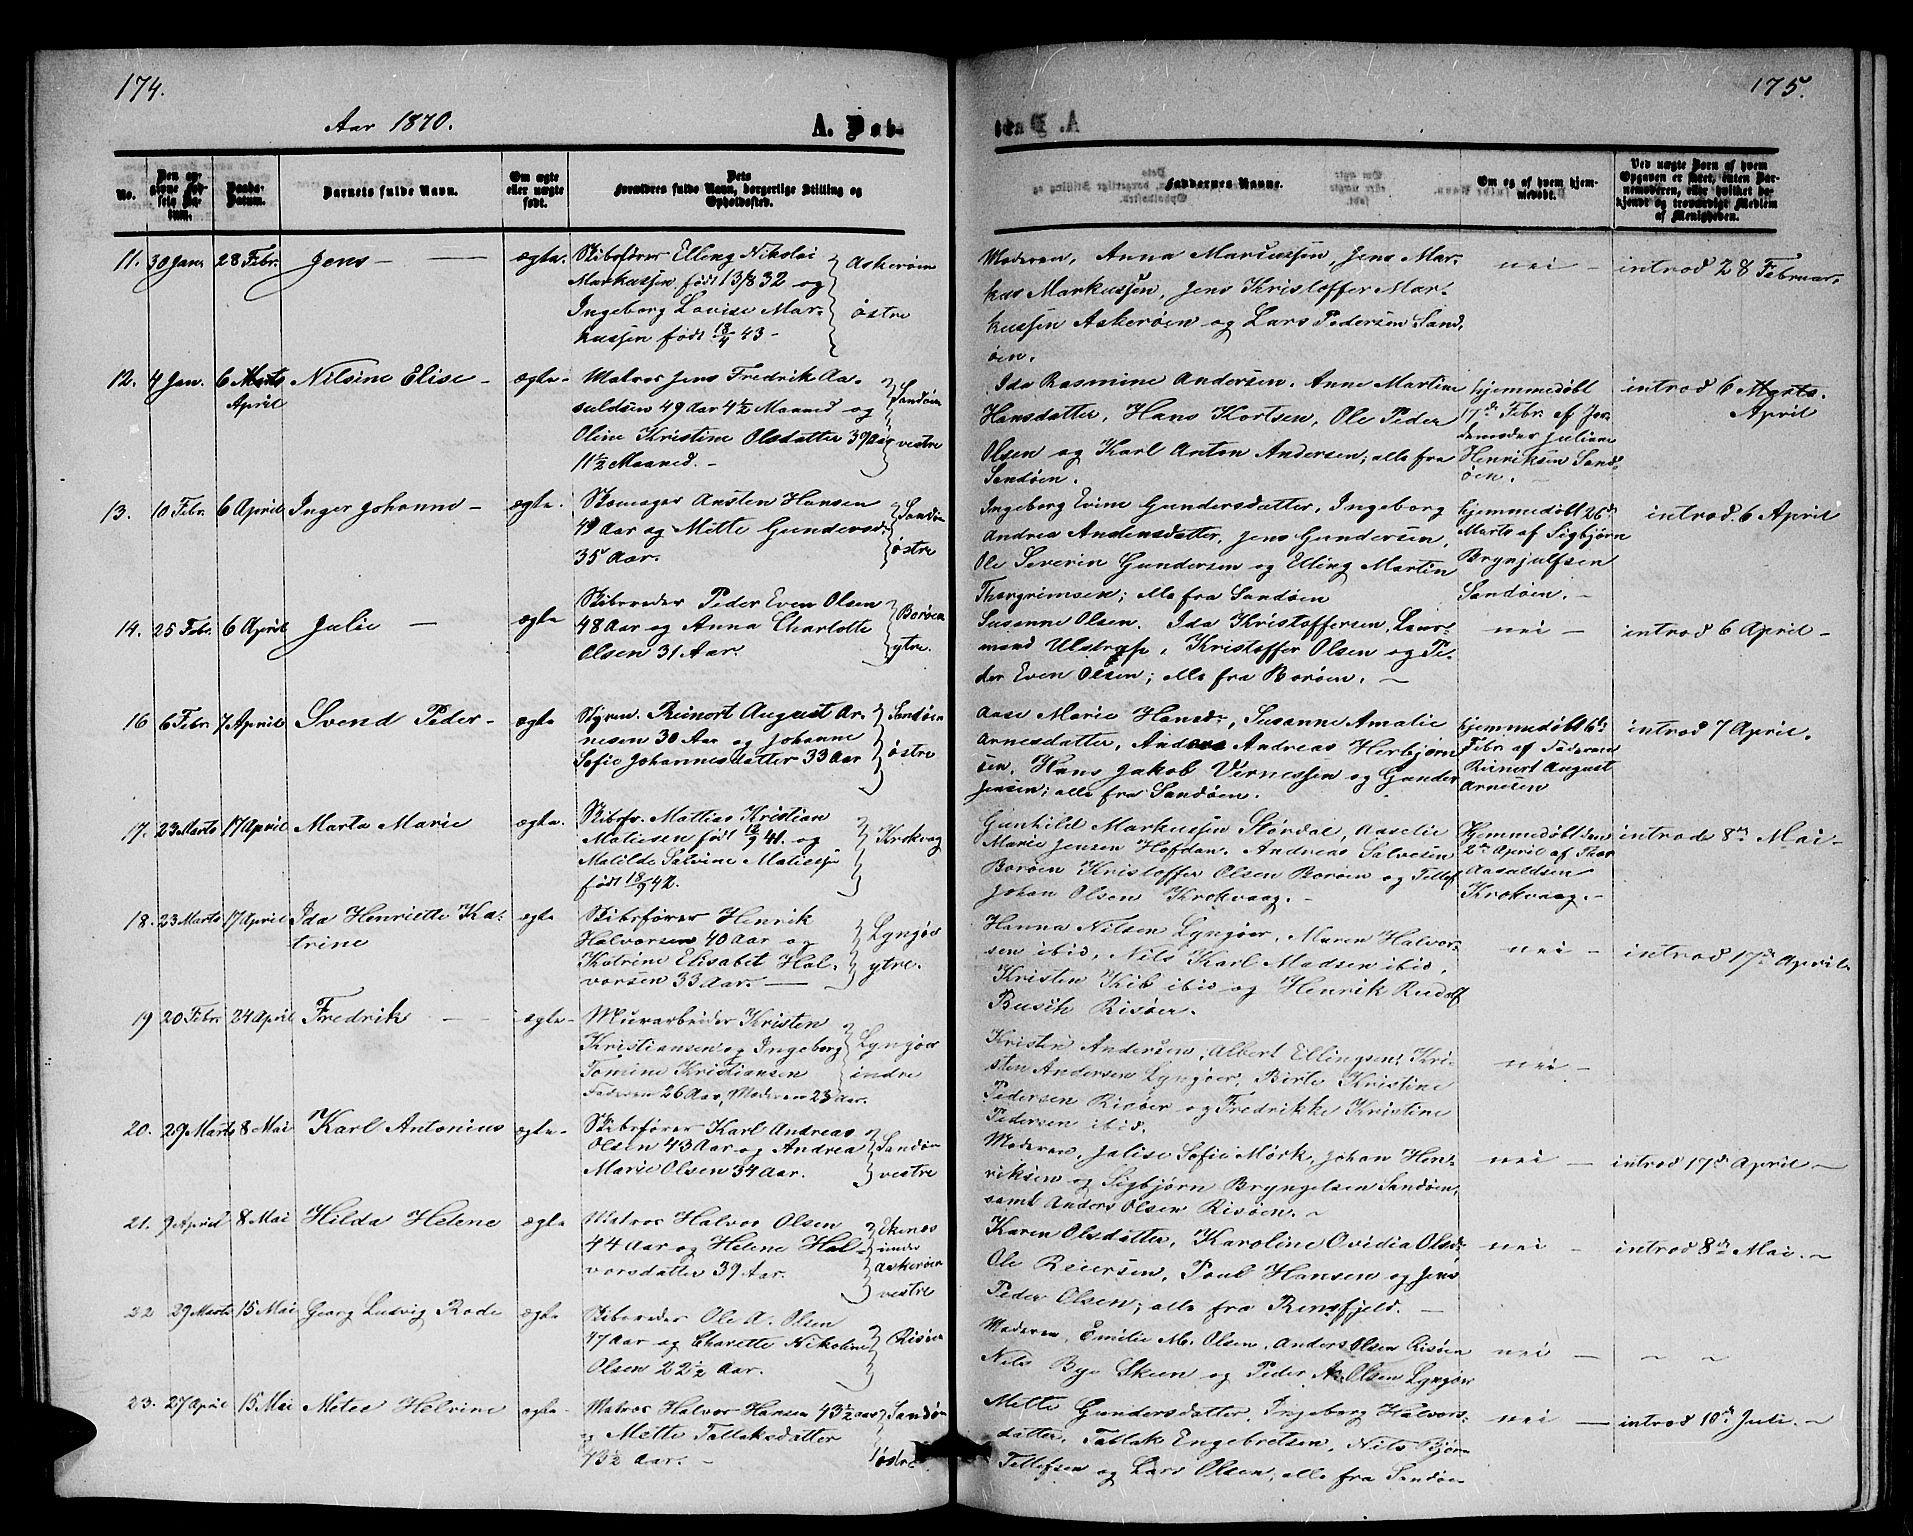 174.
Aar 1870.
A. Døb-
No.
Den an-
givne Fød-
sels Da-
tum.
Daabs-
Datum.
Barnets fulde Navn.
Om ægte
eller uægte
født.
Dets
Forældres fulde Navn, borgerlige Stilling og
Opholdssted.
11. 30 Jan. 28 Febr. Jens - ægte. Skibsfører Elling Nikolai
Markussen født 13/8 32 og
Ingeborg Lovise Mar-
kussen født 18/4 43 -
Askerøen
østre
12. 4 Jan. 6 Marts Nilsine Elise - ægte - Matros Jens Fredrik Aa-
April
suldsen 49 Aar 4½ Maaned og
Oline Kristine Olsdatter 39 Aar
11½ Maaned. -
Sandøen
vestre
13. 10 Febr. 6 April Inger Johanne - ægte. Skomager Austen Hansen
49 Aar og Mette Gundersd.
35 Aar.
Sandøen
østre
14. 25 Febr. 6 April Julie - ægte Skibsreder Peder Even Olsen
48 Aar og Anna Charlotte
Olsen 31 Aar.
Borøen
ytre.
16 6 Febr. 7 April Svend Peder - ægte Styrm. Reinert August Ar-
nesen 30 Aar og Johanne
Sofie Johannesdatter 33 Aar
Sandøen
østre
17. 23 Marts 17 April Marta Marie ægte. Skibsfr. Mattias Kristian
Matiesen født 12/9 41. og
Matilde Salvine Matiesen
født 18/9 42.
Krokvaag
18. 23 Marts 17 April Ida Henriette Ka- ægte Skibsfører Henrik
trine
Halvorsen 40 Aar og
Katrine Elisabet Hal-
vorsen 33 Aar. -
Lyngør
ytre.
19 20 Febr. 24 April Fredrik - ægte - Murarbeider Kristen
Kristiansen og Ingeborg
Tomine Kristiansen
Faderen 26 Aar, Moderen 23 Aar.
Lyngør
indre
20. 29 Marts 8 Mai Karl Antonius ægte - Skibsfører Karl Andreas
Olsen 43 Aar og Andrea
Marie Olsen 34 Aar.
Sandøen
vestre
21. 9 April 8 Mai Hilda Helene ægte Matros Halvor Olsen
44 Aar og Helene Hal-
vorsdatter 39 Aar.
Ekenæs
under
Askerøen
vestre
22 29 Marts 15 Mai Georg Ludvig Rode ægte Skibsreder Ole A. Olsen
47 Aar og Charlotte Nikoline
Olsen 22½ Aar.
Risøen
23. 27 April 15 Mai Metee Helvine ægte - Matros Halvor Hansen 43½ Aar
og Mette Tallaksdatter
43½ Aar. -
Sandøen
østre
175.
Faddernes Navne.
Om og af hvem hjem-
medøbt.
Ved uægte Barn af hvem
Opgaven er skeet, enten Bar-
nemoderen, eller hvilket be-
kjendt og troværdigt Medlem
af Menigheden.
Moderen, Anna Markussen, Jens Mar-
kus Markussen, Jens Kristoffer Mar-
kussen Askerøen og Lars Pedersen Sand-
øen.
nei - introd 28 Februar.
Ida Rasmine Andersen. Anne Martine
Hansdatter, Hans Kortsen, Ole Peder
Olsen og Karl Anton Andersen; alle fra
Sandøen.
hjemmedøbt
17de Febr. af Jor-
demoder Juliane
Henriksen Sand-
øen. -
introd 6 Marts.
April
Ingeborg Evine Gundersdatter, Ingeborg
Andrea Andensdatter, Jens Gundersen,
Ole Severin Gundersen og Elling Martin
Thorgrimsen; alle fra Sandøen
hjemmedøbt 26de
Marts af Sigbjørn
Brynjulfsen
Sandøen. -
introd. 6 April
Susanne Olsen. Ida Kristoffersen, Lens-
mand Ulstrup, Kristoffer Olsen og Pe-
der Even Olsen; alle fra Borøen. -
nei - introd 6 April -
Aase Marie Hansd., Susanne Amalie
Arnesdatter, Anders Andreas Herbjørn-
sen, Hans Jakob Vernessen og Gunder
Jensen; alle fra Sandøen.
hjemmedøbt 6te
Febr. af Faderen
Reinert August
Arnesen
introd 7 April.
Gunhild Markussen Størdal, Aaselie
Marie Jensen Hofdan. Andreas Salvesen
Borøen Kristoffer Olsen Borøen og Tellef
Johan Olsen Krokvaag. -
Hjemmedøbt den
2den April af Thor
Aasuldsen
Krokvaag. -
introd 8de Mai -
Hanna Nilsen Lyngør, Maren Halvor-
sen ibid, Nils Karl Madsen ibid,
Kristen Kib ibid og Henrik Rudolf
Busik Risøer.
nei - introd 17de April
Kristen Andersen, Albert Ellingsen, Kri-
sten Andersen Lyngøer, Birte Kristine
Pedersen Risøer og Fredrikke Kristine
Pedersen ibid.
nei -
Moderen, Jalise Sofie Mørk, Johan Hen-
riksen og Sigbjørn Bryngelsen Sandøen,
samt Anders Olsen Risøen. -
nei - introd 17de April -
Karen Olsdatter, Karoline Ovidia Olsd.
Ole Reiersen, Poul Hansen og Jens
Peder Olsen; alle fra -
nei - introd 8de Mai. -
Moderen, Emilie M. Olsen, Anders Olsen Risøen
Nils Bye Skeen og Peder A. Olsen Lyngøer
nei - - -
Mette Gundersdatter, Ingeborg Halvors-
datter, Tallak Engebretsen, Nils Bjørn
Tellefsen og Lars Olsen, alle fra Sandøen
nei - introd 10de Juli. -